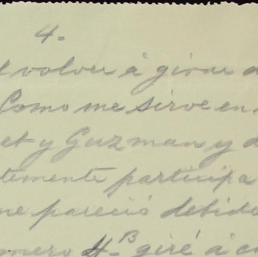 4.
l volver á girar
Como me sirve en
et y Guzman y d
temente participa
me pareció debido
mero 4.B giré á c